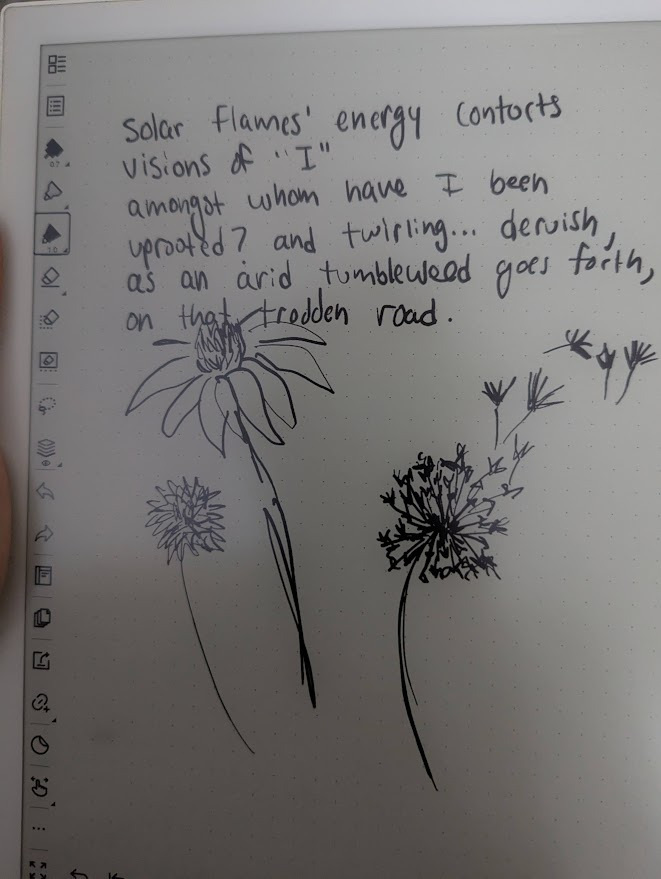 Solar Flames' energy contorts
visions of "I"
amongst whom have I been
uprooted? and twirling... dervish,
as an arid tumbleweed goes forth,
on that trodden road.